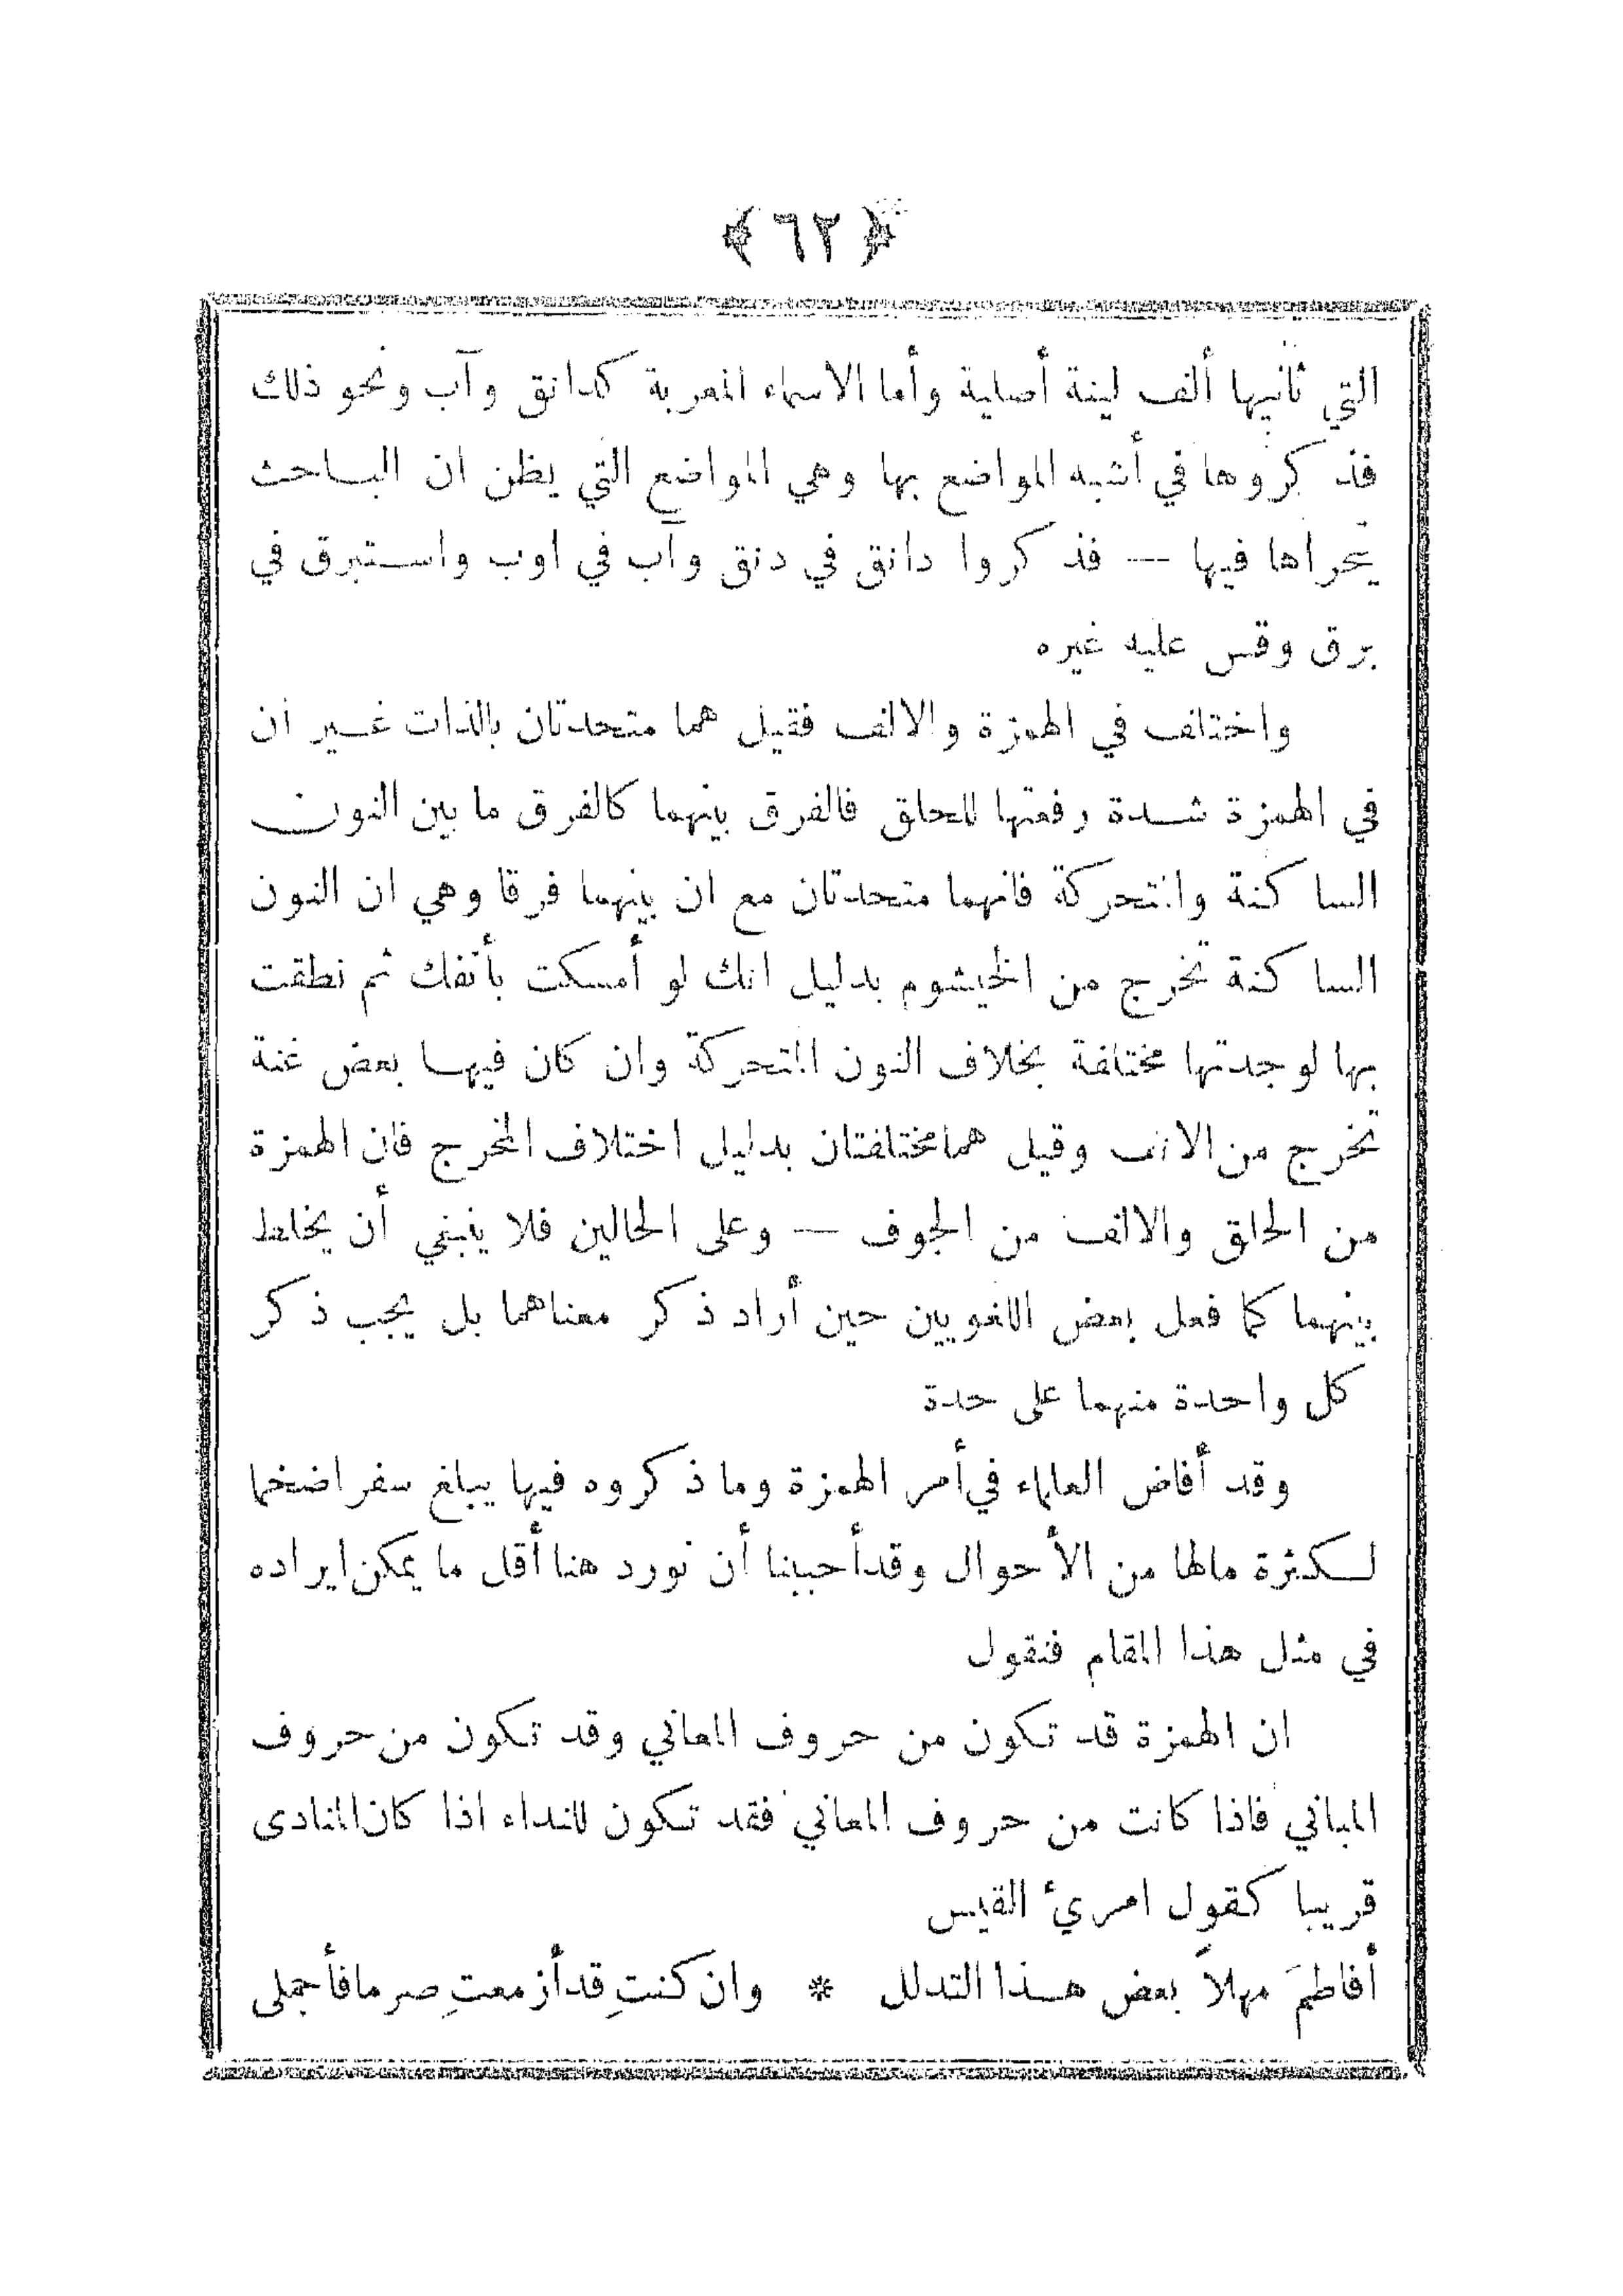 ﴿ ٦٢ ﴾
التي ثانيها ألف لينة أصلية وأما الاسماء المعربة كدانق وآب ونحو ذلك
فذكروها في أشبه المواضع بها وهي المواضع التي يظن ان الباحث
يتحراها فيها — فذكروا دانق في دنق وآب في اوب واستبرق في
برق وقس عليه غيره
واختلف في الهمزة والالف فقيل هما متحدتان بالذات غير ان
في الهمزة شدة رفعتها للحلق فالفرق بينهما كالفرق ما بين النون
الساكنة والمتحركة فانهما متحدتان مع ان بينهما فرقا وهي ان النون
الساكنة تخرج من الخيشوم بدليل انك لو أمسكت بأنفك ثم نطقت
بها لوجدتها مختلفة بخلاف النون المتحركة وان كان فيها بعض غنة
تخرج من الانف وقيل هما مختلفتان بدليل اختلاف المخرج فان الهمزة
من الحلق والالف من الجوف — وعلى الحالين فلا ينبغي أن يخلط
بينهما كما فعل بعض اللغويين حين أراد ذكر معناهما بل يجب ذكر
كل واحدة منهما على حدة
وقد أفاض العلماء في أمر الهمزة وما ذكروه فيها يبلغ سفرا ضخما
لكثرة مالها من الأحوال وقد أحببنا أن نورد هنا أقل ما يمكن ايراده
في مثل هذا المقام فنقول
ان الهمزة قد تكون من حروف المعاني وقد تكون من حروف
المباني فاذا كانت من حروف المعاني فقد تكون للنداء اذا كان المنادى
قريبا كقول امرئ القيس
أفاطمَ مهلاً بعض هذا التدلل * وان كنتِ قد أزمعتِ صرما فأجملى